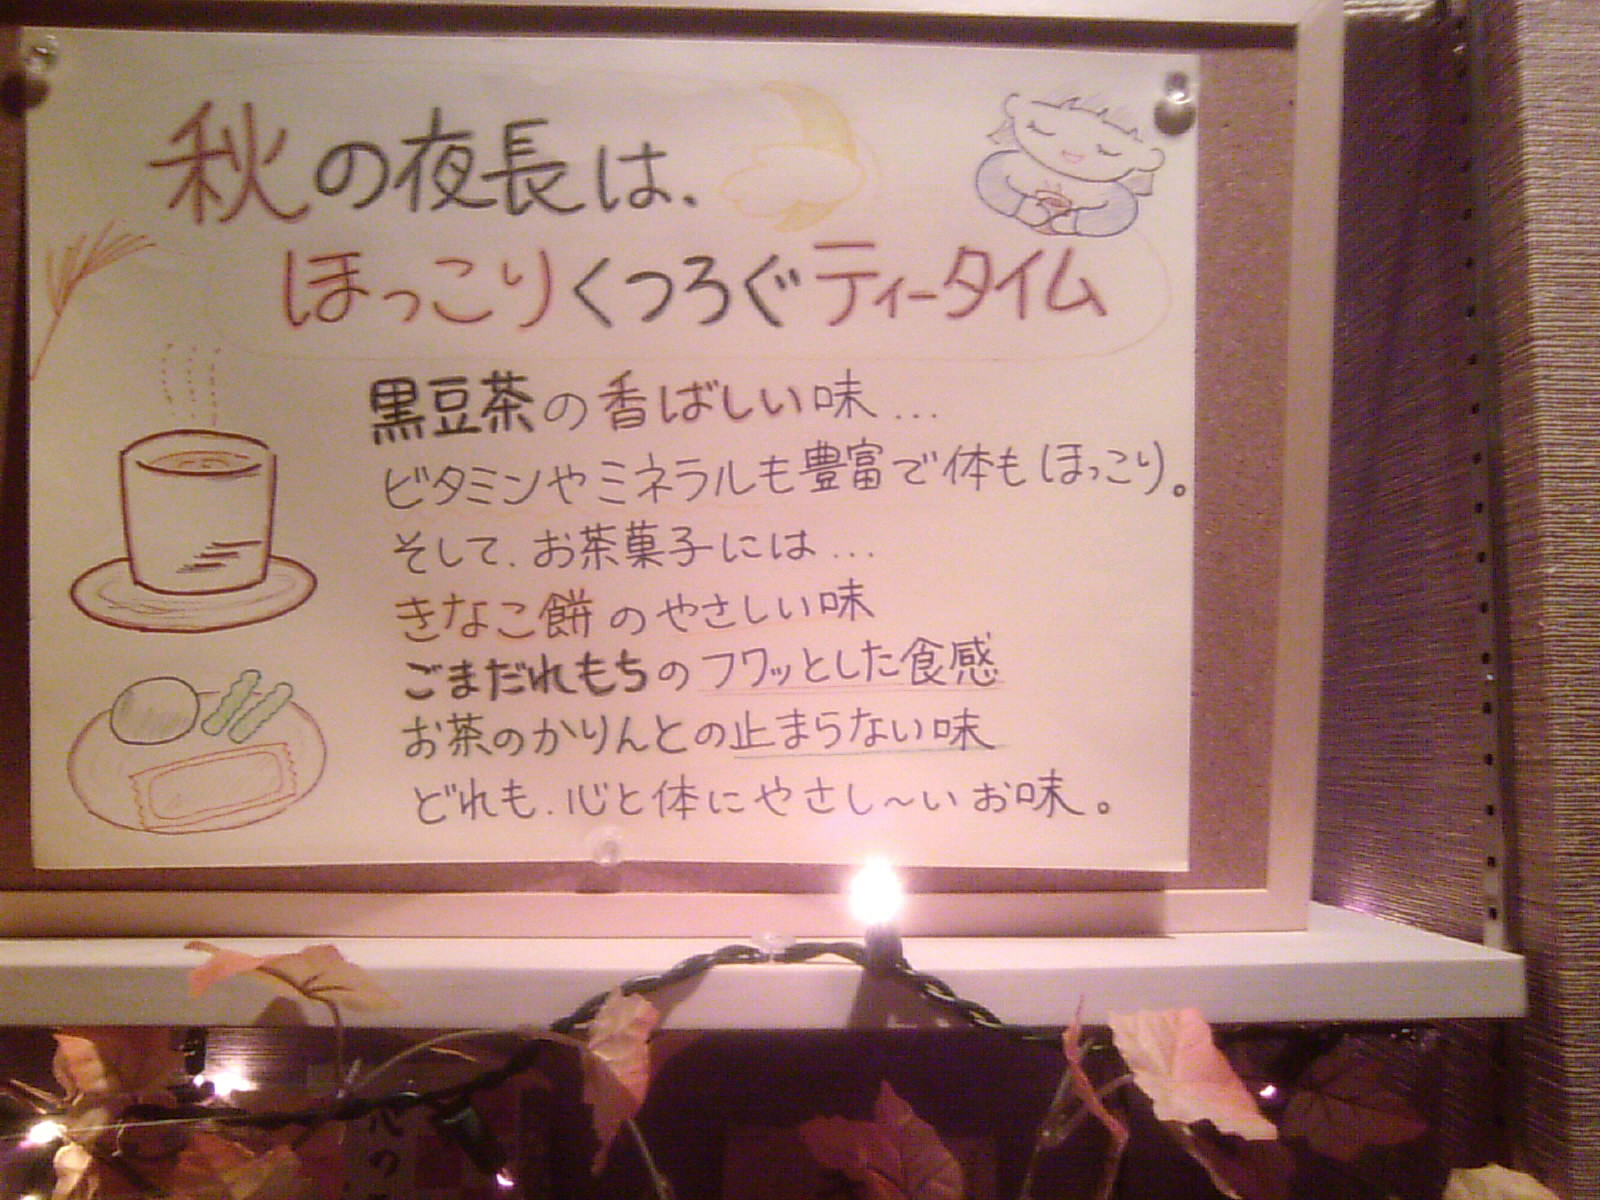 秋の夜長は、
ほっこりくつろぐティータイム
黒豆茶の香ばしい味…
ビタミンやミネラルも豊富で体もほっこり。
そして、お茶菓子には…
きなこ餅のやさしい味
ごまだれもちのフワッとした食感
お茶のかりんとの止まらない味
どれも、心と体にやさし〜いお味。